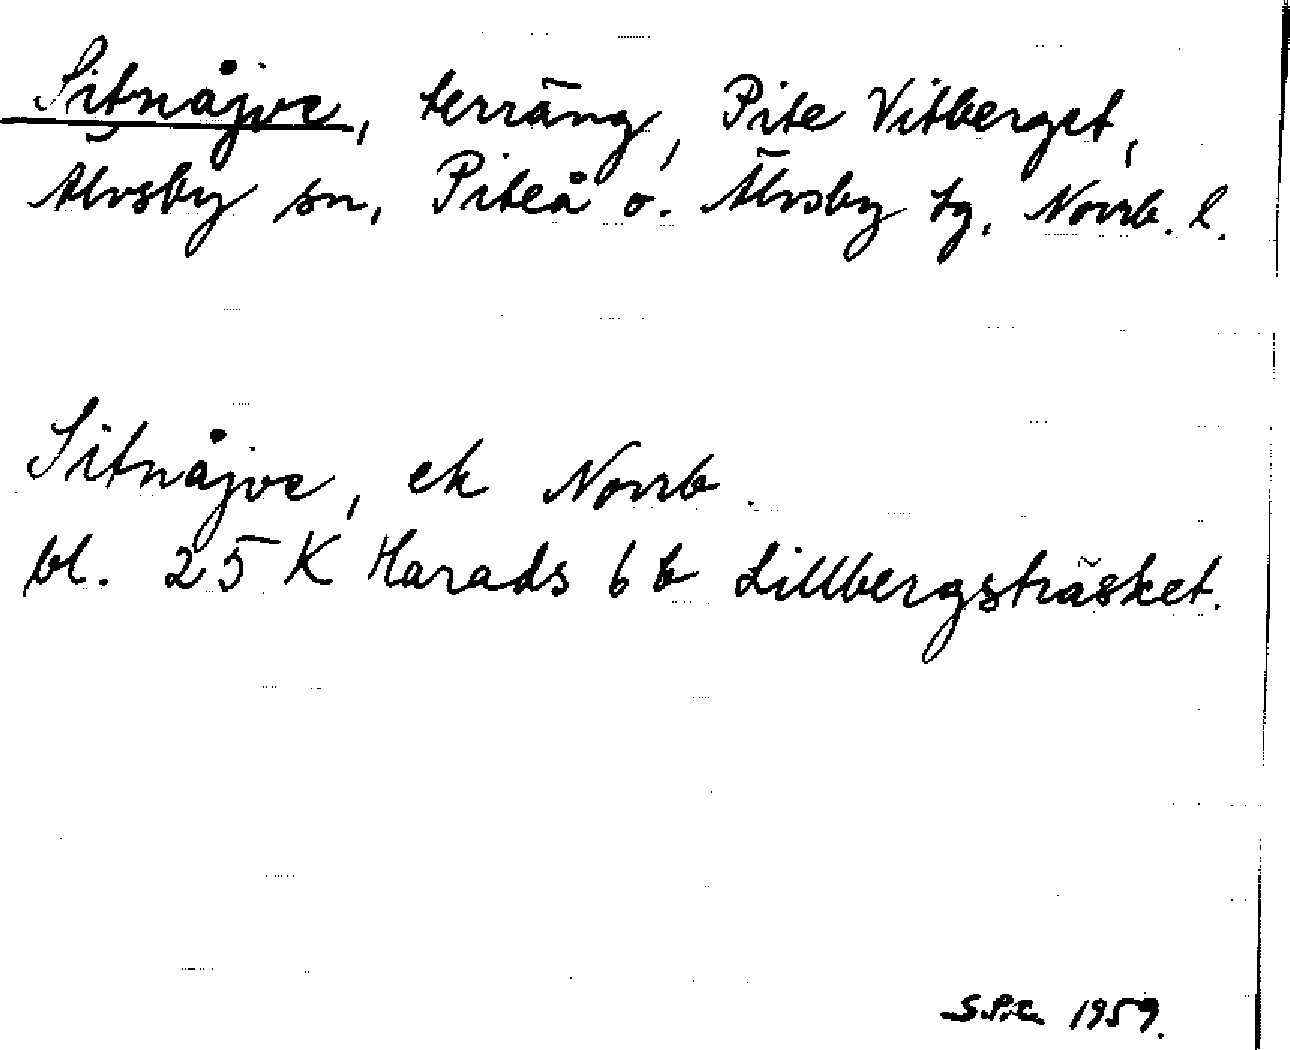 Sitnåjve, terräng, Pite Vitberget,
Älvsby sn, Piteå o. Älvsby tg, Norrb. l.
Sitnåjve, ek Norrb.
bl. 25 K Harads 6 b Lillbergsträsket.
1959.